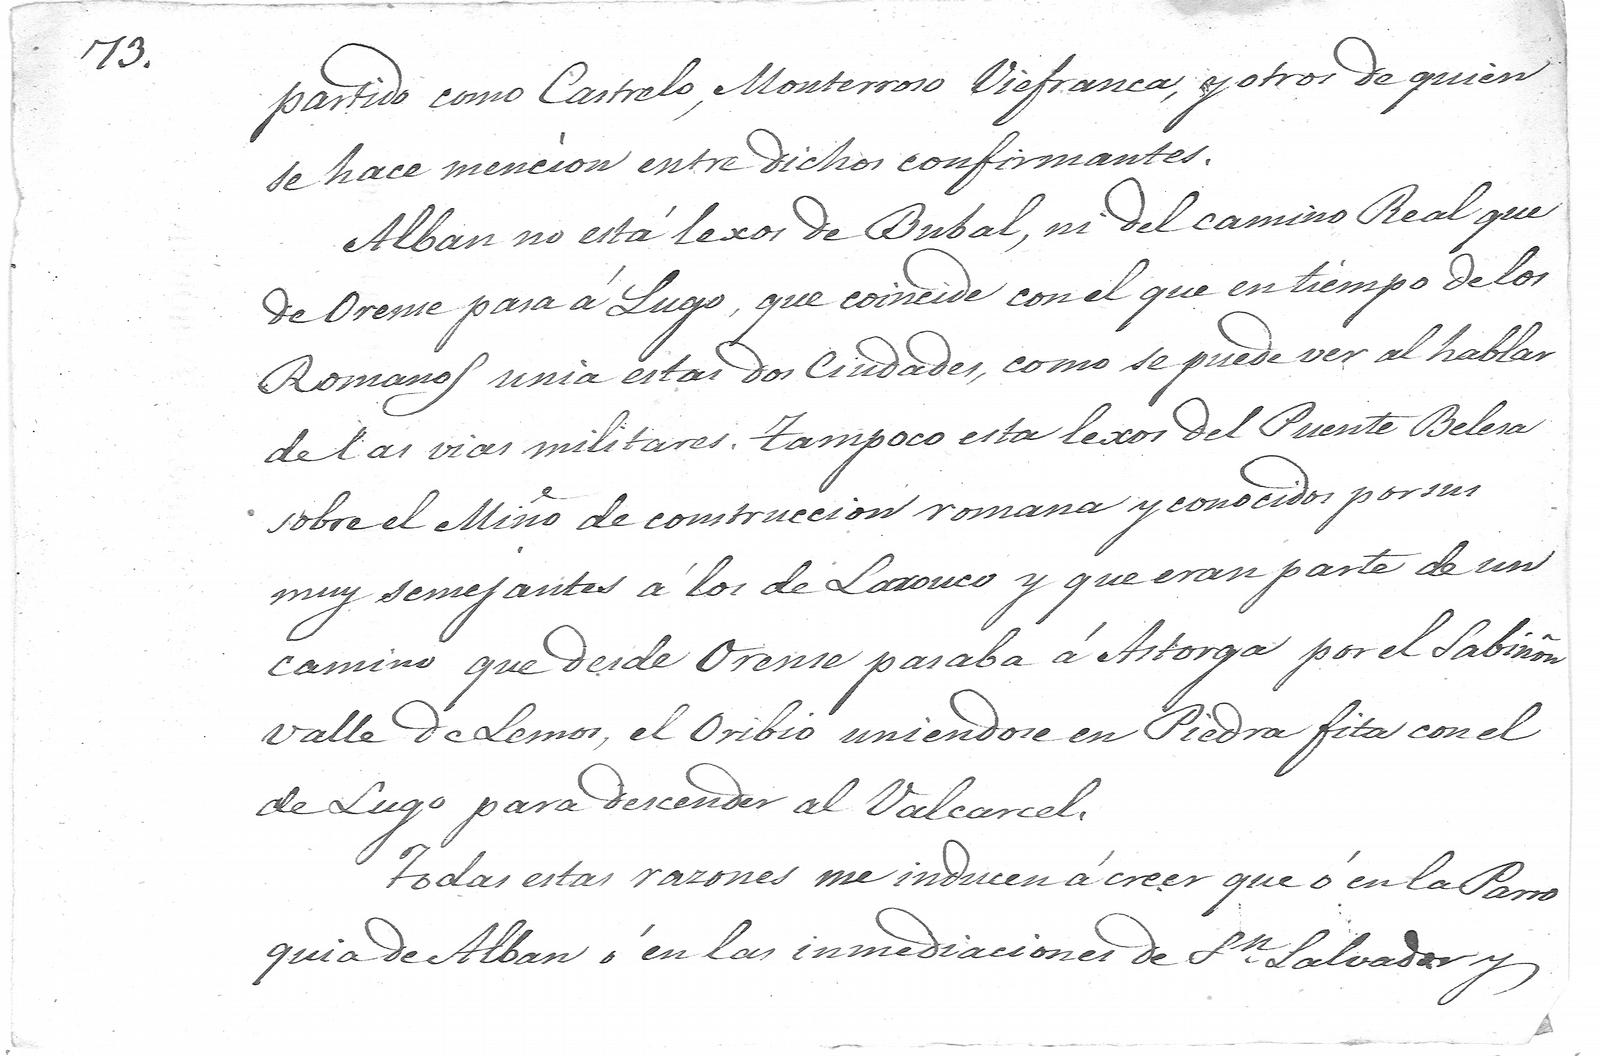 73.
partido como Castrelo, Monterroso Viefranca, y otros de quien
se hace mencion entre dichos confirmantes.
Alban no está lexos de Bubal, ni del camino Real que
de Orense pasa á Lugo, que coincide con el que en tiempo de los
Romanos unia estas dos Ciudades, como se puede ver al hablar
de las vias militares. Tampoco esta lexos del Puente Belesa
sobre el Miño de construccion romana y conocidos por sus
muy semejantes á los de Laxouco y que eran parte de un
camino que desde Orense pasaba á Astorga por el Sabiñon
valle de Lemos, el Oribio uniendose en Piedra fita con el
de Lugo para descender al Valcarcel.
Todas estas razones me inducen á creer que ó en la Parro
quia de Alban ó en las inmediaciones de Sn. Salvador y